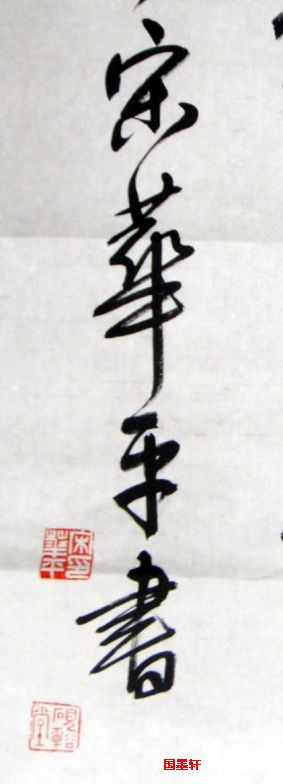 宋華平書
宋華平印
国墨轩